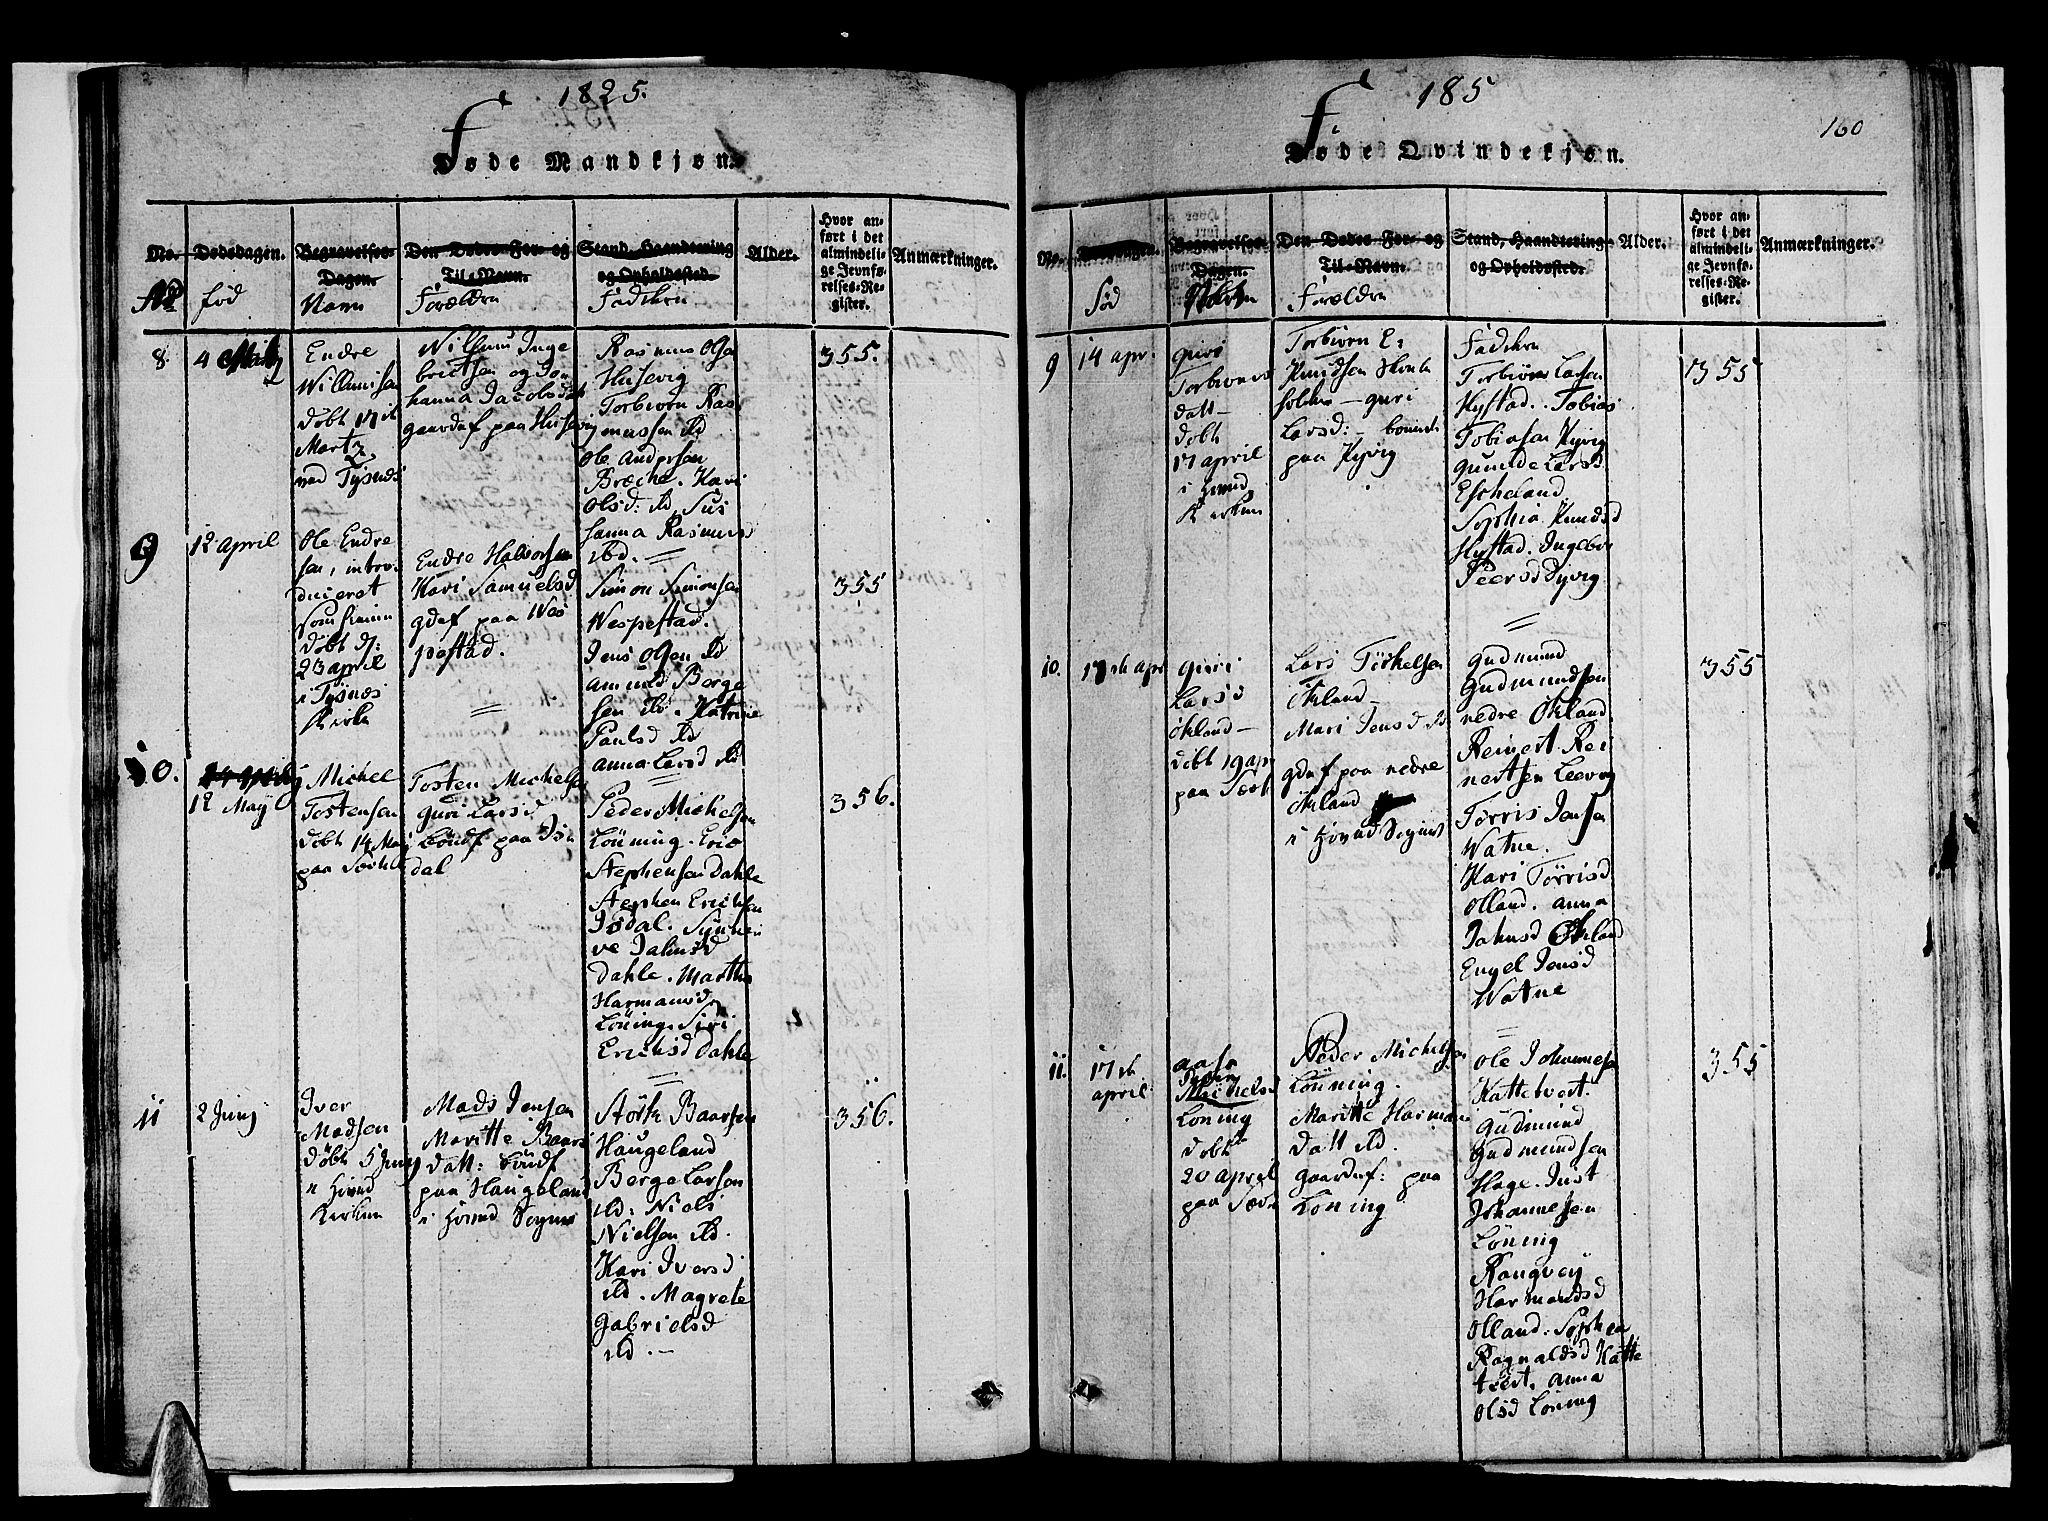 1825.
Føde Mandkjøn
No. Dødsdagen. Begravelses-Dagen. Den Dødes For- og Til-Navn. Stand, Haandtering og Opholdssted. Alder. Hvor anført i det almindelige Jevnførelses-Register. Anmærkninger.
No fød Navn Forældre Faddere
8.
4 Martz
Endre
Willumsen
døbt 17de
Martz
ved Tysnes
Willum Inge
brictsen og Jo
hanna Jacobsdat
gaardmf paa Husevig
Rasmus Olsen
Husevig
Torbiørn Ras
mussen ibd
Ole Andersen
Bræche. Kari
Olsd: ibd, Sus
hanna Rasmusd
ibd.
355.
9
12 april
Ole Endre
sen, intro
duceret
døbt d:
23 april
i Tysnes
Kirke
Endre Halvorsen
Kari Samuelsd
gdmf paa Wes
pestad.
Simon Simonsen
Wespestad.
Jens Olsen ibd
Amund Berge
sen ibd. Katrine
Paulsd ibd
Anna Larsd ibd
355
10.
12 Maÿ
Michel
Tostensen
døbt 14 Maj
Tosten Michelsen
Guri Larsd
bøndf paa Isn
dal
Peder Michelsen
Lönning. Eric
Stephensen Dahle
Stephen Ericksen
Isdal. Synne
ve Jahnsd
Dahle. Marthe
Harmansd
Löning. Siri
Ericksd Dahle
356.
11
2 Junj
Iver
Madsen
døbt 5 Junj
i Hovud
Kirken
Mads Jensen
Maritte Baars
datt: bøndf
paa Haugeland
i Hovud Sogn
Störk Baarsen
Haugeland
Berge Larsen
ibd: Niels
Nielsen ibd.
Kari Iversd
ibd. Magrete
Gabrielsd
ibd.
356.
185
160
Fødte Qvindekjøn.
No. Begravelses-Dagen. Den Dødes For- og Til-Navn. Stand, Haandtering og Opholdssted. Alder. Hvor anført i det almindelige Jevnførelses-Register. Anmærkninger.
Fød Forældre
9
14 apr.
Guri
Torbiørns
datt
døbt
17 april
i Hovud
Kirken
Torbiørn E.
Knudsen
soldat - Guri
Larsd: - boende
paa Kyvig
Faddere
Torbiørn Larsen
Hystad. Tobias
Tobiasen Kyvig
Gunilde Larsd
Escheland
Sophia Knudsd
Hystad. Ingebor
Peersd Dyvig
355
10.
17de apr
Guri
Larsd
Økland
døbt 19 apr
Lars Törkelsen
Økland
Mari Jensd
gdmf paa nedre
Økland
i Hovud Sogn
Gudmund
Gudmundsen
nedre Økland.
Reinert Rei
nertsen Leevig
Törris Jensen
Watne.
Kari Törrisd
Olland. Anna
Jahnsd Økland
Engel Jensd
Watne
355
11.
17de
april
Aase
Peder
Michelsd
Löning
døbt
20 april
Peder Michelsen
Lönning.
Maritte Harmans
datt ibd.
gaardmf: paa
Löning
Ole Johannesen
Kattetvert.
Gudmund
Gudmundsen
Hage. Just
Johannesen
Löning
Rangvey
Harmandsd
Olland. Sophia
Ragnaldsd Katte
tvert. Anna
Olsd Löning
355